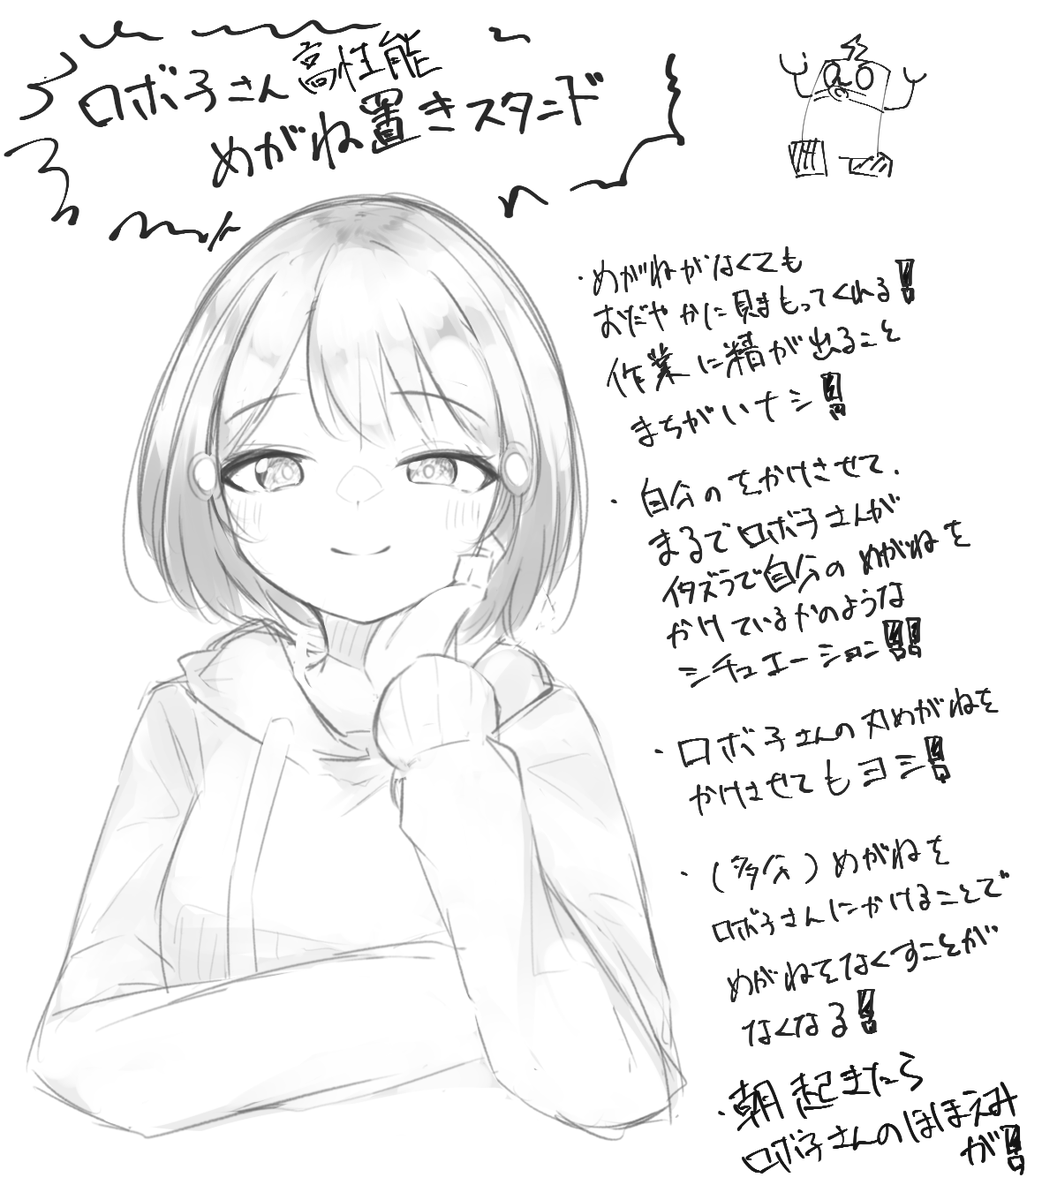 ロボ子さん高性能
めがね置きスタンド
・めがねがなくても
おだやかに見まもってくれる!!
作業に精が出ること
まちがいナシ!!
・自分のをかけさせて、
まるでロボ子さんが
イタズラで自分のめがねを
かけているかのような
シチュエーション!!
・ロボ子さんの丸めがねを
かけさせてもヨシ!!
・(多分)めがねを
ロボ子さんにかけることで
めがねをなくすことが
なくなる!!
・朝起きたら
ロボ子さんのほほえみ
が!!